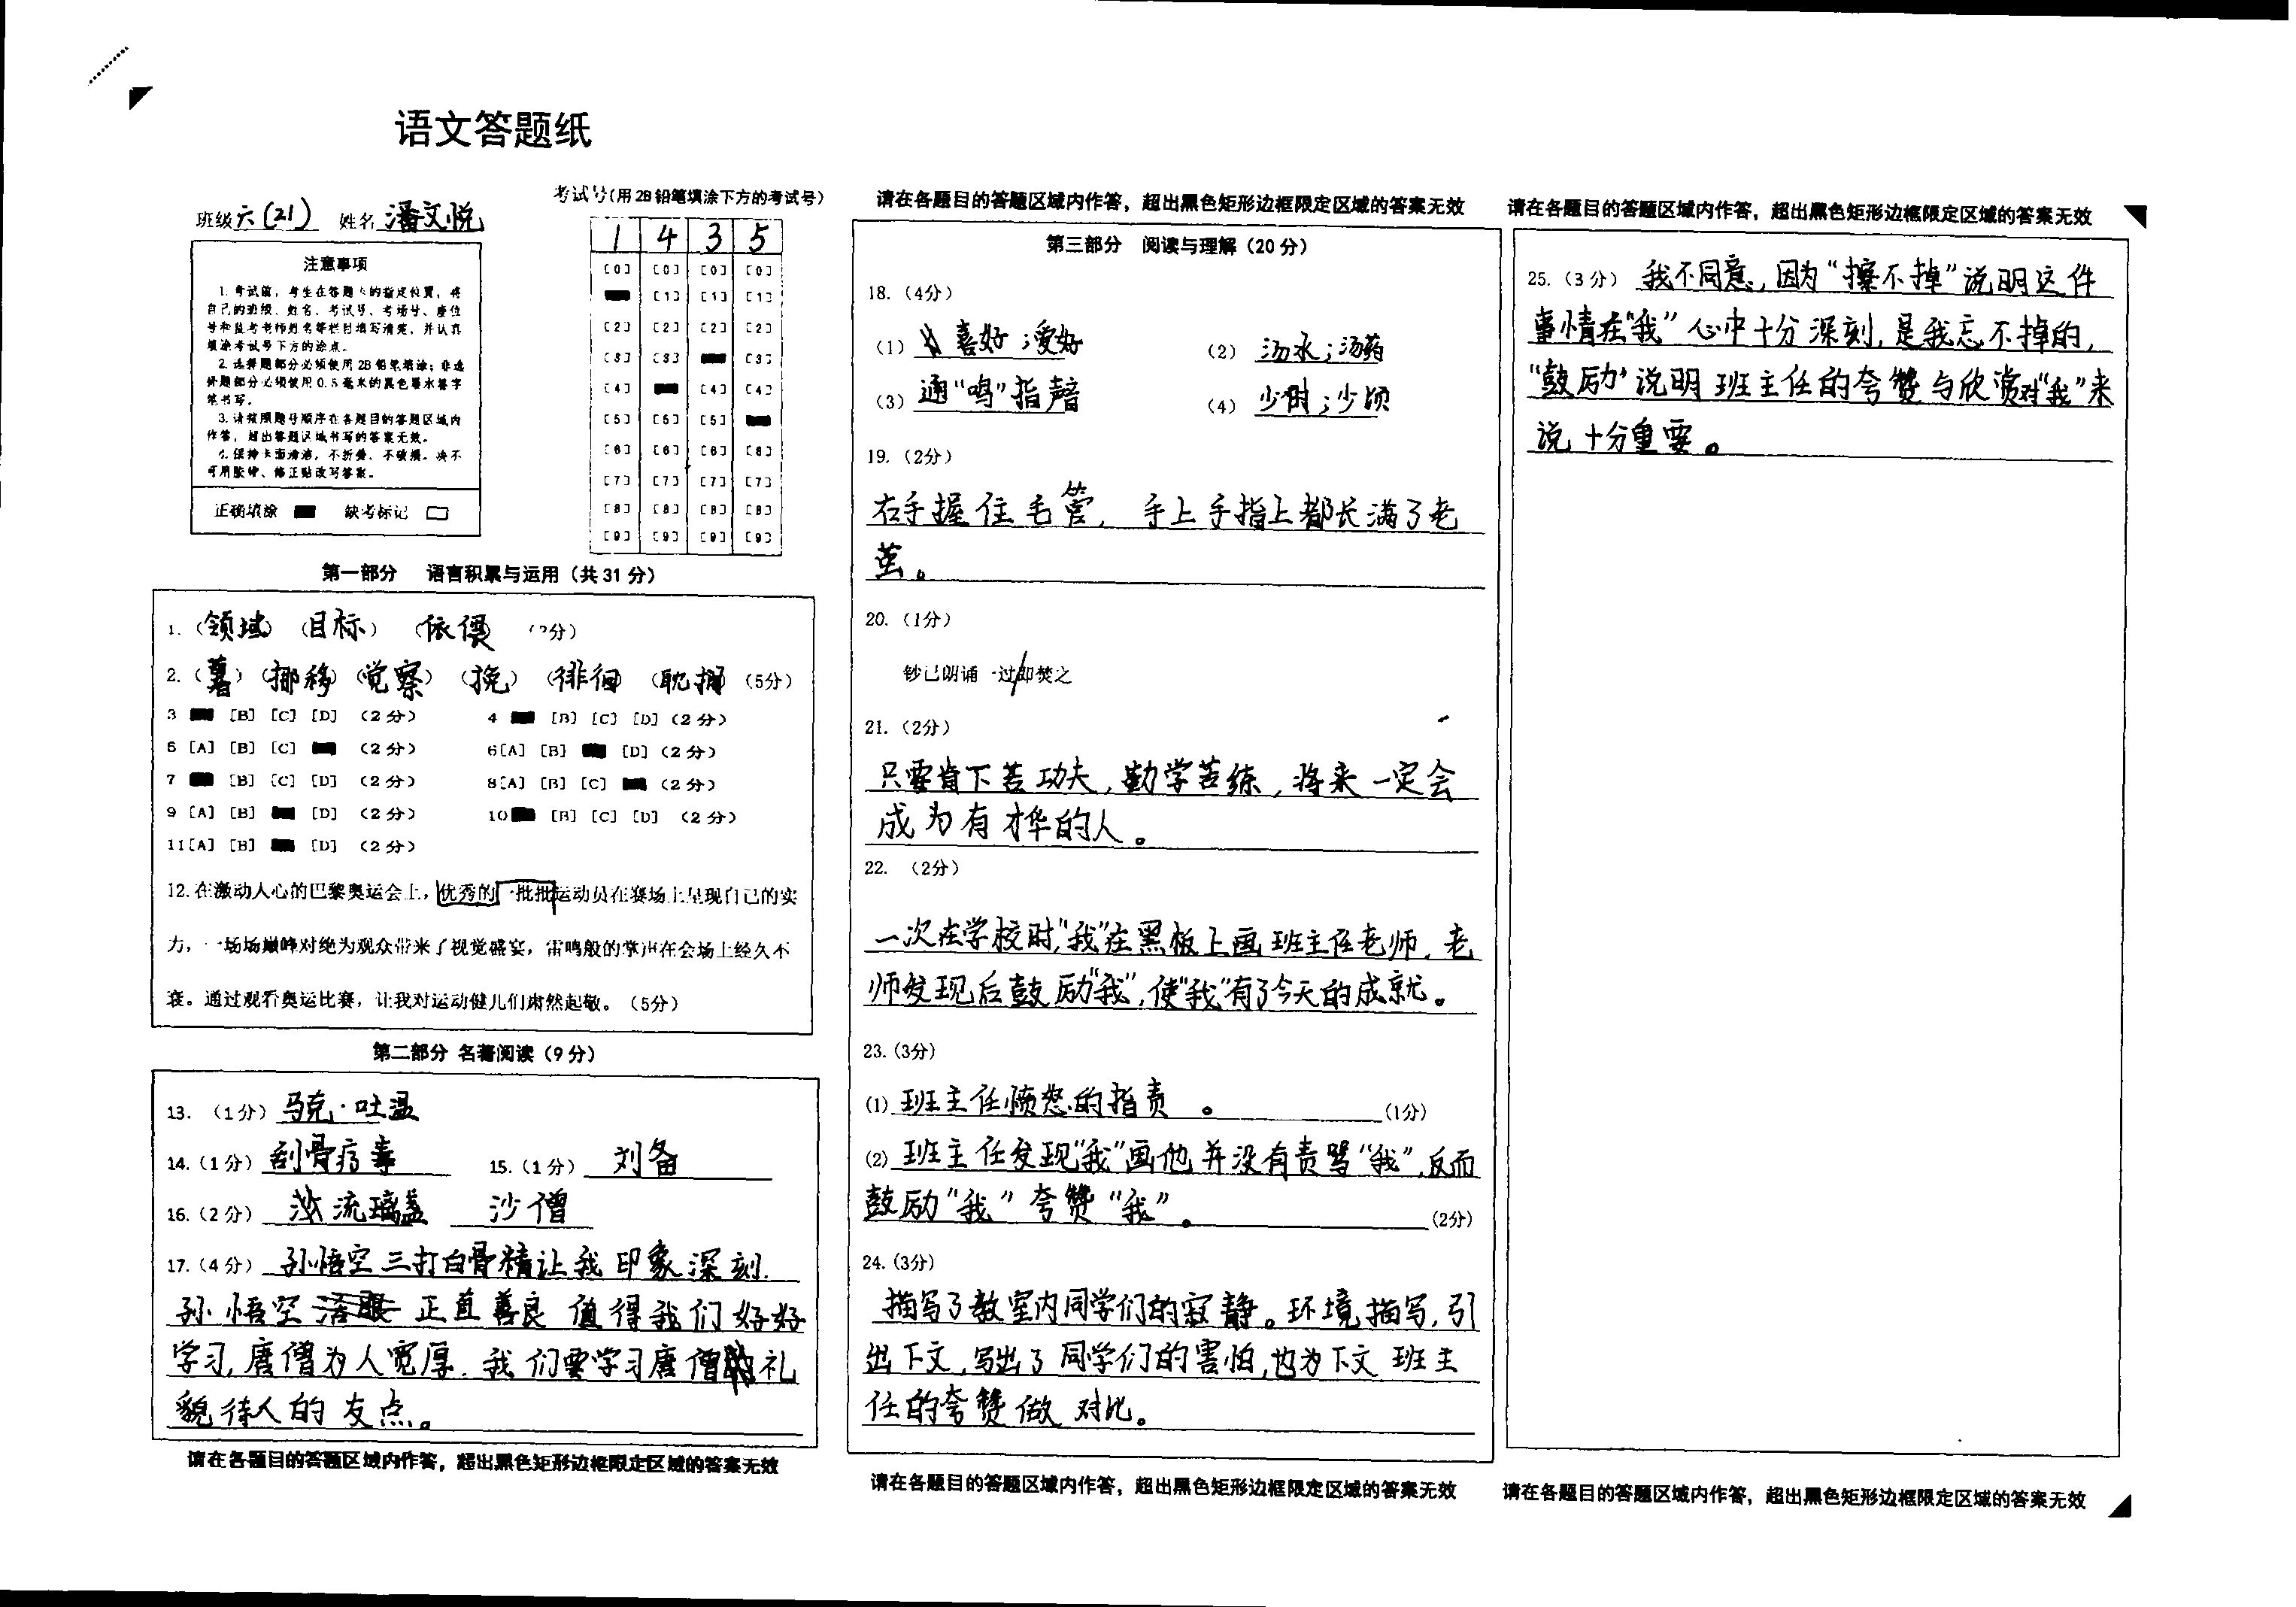 语文答题纸
班级 六(21) 姓名 潘文悦
考试号(用2B铅笔填涂下方的考试号)
1 4 3 5
[0] [0] [0] [0]
[1] [1] [1]
[2] [2] [2] [2]
[3] [3] [3]
[4] [4] [4]
[5] [5] [5]
[6] [6] [6] [6]
[7] [7] [7] [7]
[8] [8] [8] [8]
[9] [9] [9] [9]
注意事项
1. 考试前，考生在答题卡的指定位置，将
自己的班级、姓名、考试号、考场号、座位
号和监考老师姓名等栏目填写清楚，并认真
填涂考试号下方的涂点。
2. 选择题部分必须使用2B铅笔填涂；非选
择题部分必须使用0.5毫米的黑色墨水签字
笔书写。
3. 请按照题号顺序在各题目的答题区域内
作答，超出答题区域书写的答案无效。
4. 保持卡面清洁，不折叠、不破损。决不
可用胶带、修正贴改写答案。
正确填涂 缺考标记
第一部分 语言积累与运用（共31分）
1.（领域）（目标）（依偎）（3分）
2.（薯）（挪移）（觉察）（挽）（徘徊）（耽搁）（5分）
3 [B] [C] [D] （2分） 4 [B] [C] [D]（2分）
5 [A] [B] [C] （2分） 6[A] [B] [D]（2分）
7 [B] [C] [D] （2分） 8[A] [B] [C] （2分）
9 [A] [B] [D] （2分） 10 [B] [C] [D] （2分）
11[A] [B] [D] （2分）
12.在激动人心的巴黎奥运会上，优秀的一批批运动员在赛场上呈现自己的实
力，一场场巅峰对绝为观众带来了视觉盛宴，雷鸣般的掌声在会场上经久不
衰。通过观看奥运比赛，让我对运动健儿们肃然起敬。（5分）
第二部分 名著阅读（9分）
13.（1分）马克·吐温
14.（1分）刮骨疗毒 15.（1分）刘备
16.（2分）流璃盏 沙僧
17.（4分）孙悟空三打白骨精让我印象深刻.
孙悟空 正直善良 值得我们好好
学习,唐僧为人宽厚.我们要学习唐僧 礼
貌待人的友点。
请在各题目的答题区域内作答，超出黑色矩形边框限定区域的答案无效
请在各题目的答题区域内作答，超出黑色矩形边框限定区域的答案无效
第三部分 阅读与理解（20分）
18.（4分）
（1）喜好;爱好 （2）汤水;汤药
（3）通“鸣”指声音 （4）少时;少顷
19.（2分）
右手握住毛管, 手上手指上都长满了老
茧。
20.（1分）
钞已朗诵一过/即焚之
21.（2分）
只要肯下苦功夫,勤学苦练,将来一定会
成为有才华的人。
22.（2分）
一次在学校时,“我”在黑板上画班主任老师,老
师发现后鼓励“我”,使“我”有了今天的成就。
23.（3分）
(1)班主任愤怒的指责。（1分）
(2)班主任发现“我”画他并没有责骂“我”,反而
鼓励“我”夸赞“我”。（2分）
24.（3分）
描写了教室内同学们的寂静。环境描写,引
出下文,写出了同学们的害怕,也为下文班主
任的夸赞做对比。
请在各题目的答题区域内作答，超出黑色矩形边框限定区域的答案无效
请在各题目的答题区域内作答，超出黑色矩形边框限定区域的答案无效
25.（3分）我不同意,因为“擦不掉”说明这件
事情在“我”心中十分深刻,是我忘不掉的,
“鼓励”说明班主任的夸赞与欣赏对“我”来
说十分重要。
请在各题目的答题区域内作答，超出黑色矩形边框限定区域的答案无效